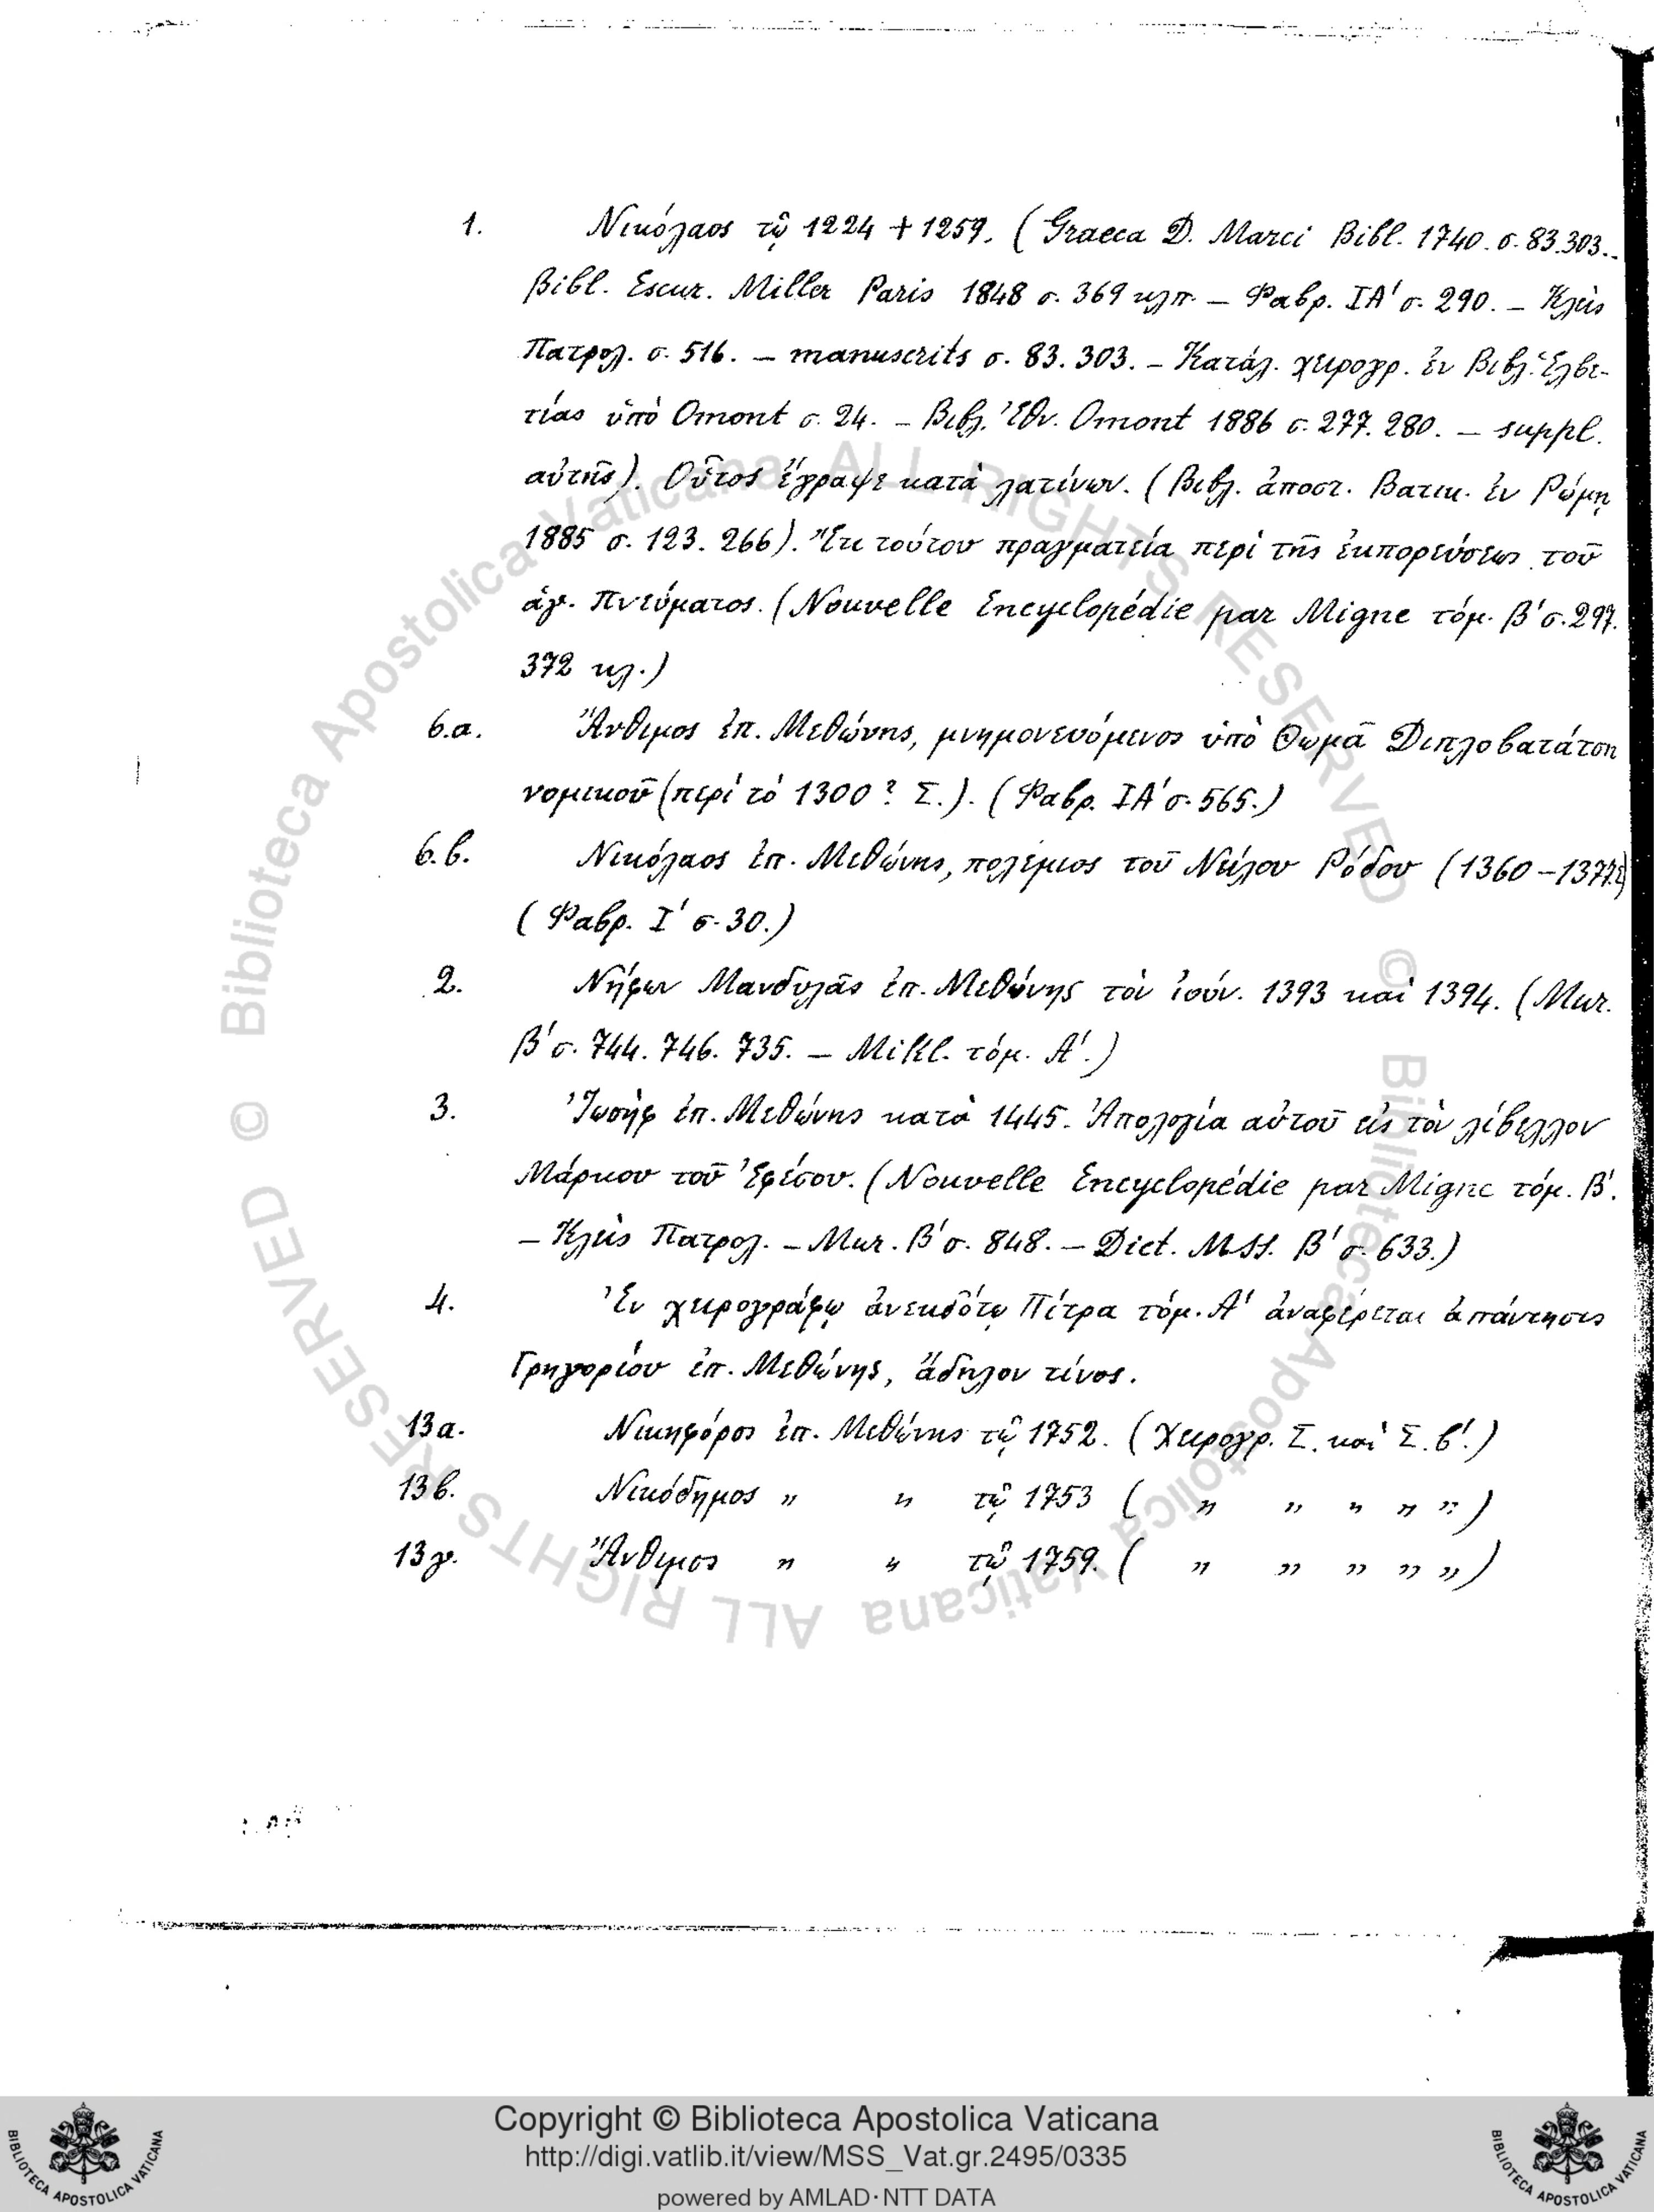 1. Νικόλαος τῷ 1224 + 1259. (Graeca D. Marci Bibl. 1740. σ. 83.303. –
Bibl. Escur. Miller Paris 1848 σ. 369 κλπ. – Φαβρ. ΙΑ' σ. 290. – Κλεὶς
Πατρολ. σ. 516. – manuscrits σ. 83. 303. – Κατάλ. χειρογρ. ἐν Βιβλ. Ἑλβε-
τίας ὑπὸ Omont σ. 24. – Βιβλ. Ἐθν. Omont 1886 σ. 277. 280. – suppl.
αὐτῆς). Οὗτος ἔγραψε κατὰ λατίνων. (Βιβλ. ἀποστ. Βατικ. ἐν Ρώμῃ
1885 σ. 123. 266). Ἔτι τούτου πραγματεία περὶ τῆς ἐκπορεύσεως τοῦ
ἁγ. Πνεύματος. (Nouvelle Encyclopédie par Migne τόμ. Β' σ. 297.
372 κλ.)
6.α. Ἄνθιμος ἐπ. Μεθώνης, μνημονευόμενος ὑπὸ Θωμᾶ Διπλοβατάτση
νομικοῦ (περὶ τὸ 1300? Σ.). (Φαβρ. ΙΑ' σ. 565.)
6.β. Νικόλαος ἐπ. Μεθώνης, πολέμιος τοῦ Νείλου Ρόδου (1360 – 1377.Σ)
(Φαβρ. Ι' σ. 30.)
2. Νήφων Μανδυλᾶς ἐπ. Μεθώνης τὸν ἰούν. 1393 καὶ 1394. (Mur.
Β' σ. 744. 746. 735. – Mikl. τόμ. Α'.)
3. Ἰωσὴφ ἐπ. Μεθώνης κατὰ 1445. Ἀπολογία αὐτοῦ εἰς τὸν λίβελλον
Μάρκου τοῦ Ἐφέσου. (Nouvelle Encyclopédie par Migne τόμ. Β'.
– Κλεὶς Πατρολ. – Mur. Β' σ. 848. – Dict. MSS. Β' σ. 633.)
4. Ἐν χειρογράφῳ ἀνεκδότῳ Πίτρα τόμ. Α' ἀναφέρεται ἀπάντησις
Γρηγορίου ἐπ. Μεθώνης, ἄδηλον τίνος.
13α. Νικηφόρος ἐπ. Μεθώνης τῷ 1752. (Χειρογρ. Σ. καὶ Σ. β'.)
13β. Νικόδημος " " τῷ 1753 ( " " " " ")
13γ. Ἄνθιμος " " τῷ 1759. ( " " " " ")
© Biblioteca Apostolica Vaticana ALL RIGHTS RESERVED
© Biblioteca Apostolica Vaticana ALL RIGHTS RESERVED
Copyright © Biblioteca Apostolica Vaticana
http://digi.vatlib.it/view/MSS_Vat.gr.2495/0335
powered by AMLAD·NTT DATA
BIBLIOTECA APOSTOLICA VATICANA
BIBLIOTECA APOSTOLICA VATICANA